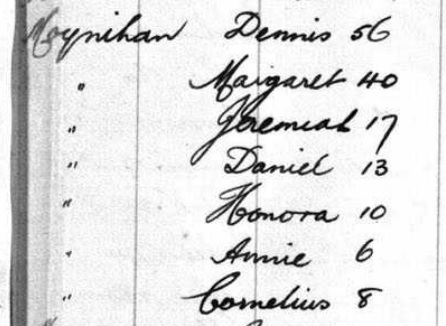 Moynihan Dennis 56
" Margaret 40
" Jeremiah 17
" Daniel 13
" Honora 10
" Annie 6
" Cornelius 8